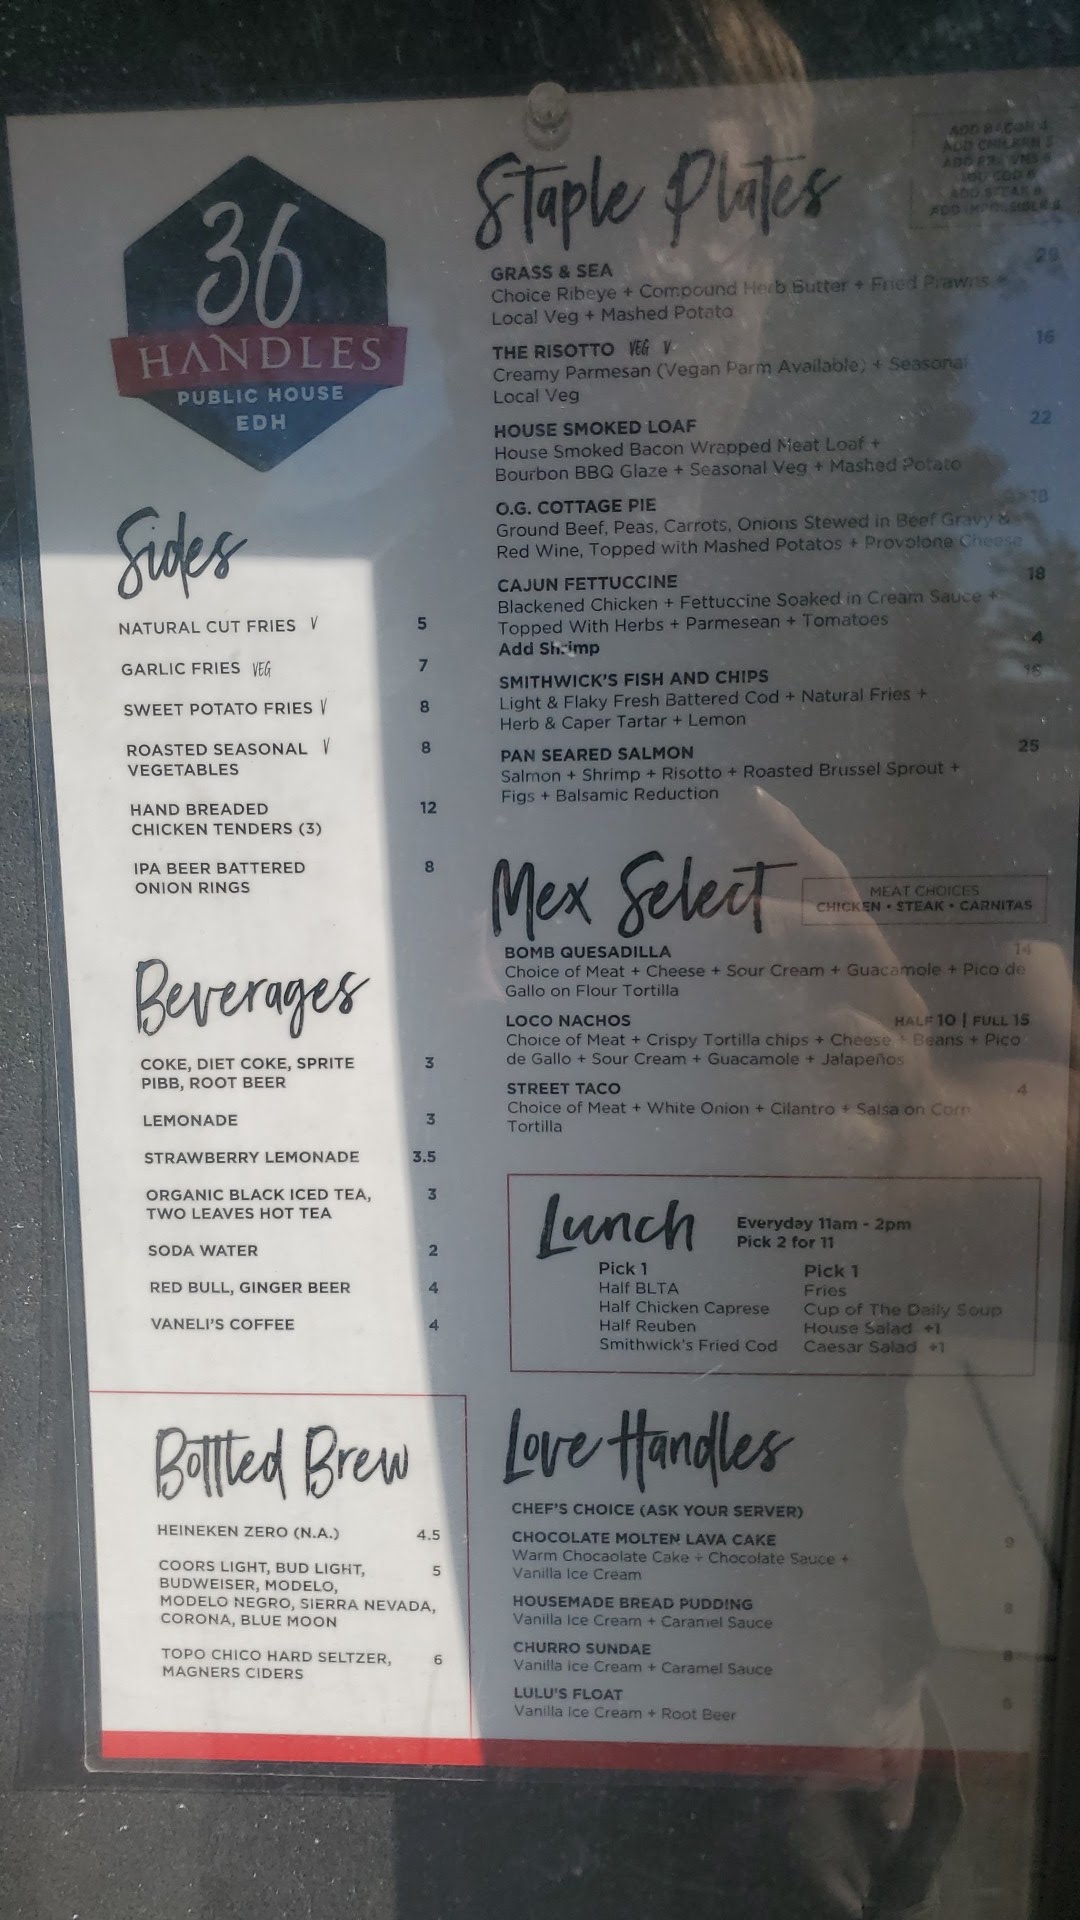 36
HANDLES
PUBLIC HOUSE
EDH
Sides
NATURAL CUT FRIES V 5
GARLIC FRIES VEG 7
SWEET POTATO FRIES V 8
ROASTED SEASONAL V 8
VEGETABLES
HAND BREADED 12
CHICKEN TENDERS (3)
IPA BEER BATTERED 8
ONION RINGS
Beverages
COKE, DIET COKE, SPRITE 3
PIBB, ROOT BEER
LEMONADE 3
STRAWBERRY LEMONADE 3.5
ORGANIC BLACK ICED TEA, 3
TWO LEAVES HOT TEA
SODA WATER 2
RED BULL, GINGER BEER 4
VANELI'S COFFEE 4
Bottled Brew
HEINEKEN ZERO (N.A.) 4.5
COORS LIGHT, BUD LIGHT, 5
BUDWEISER, MODELO,
MODELO NEGRO, SIERRA NEVADA,
CORONA, BLUE MOON
TOPO CHICO HARD SELTZER, 6
MAGNERS CIDERS
Staple Plates
ADD BACON 4
ADD CHICKEN 5
ADD
ADD STEAK
ADD IMPOSSIBLE
GRASS & SEA
Choice Ribeye + Compound Herb Butter + Fried Prawns +
Local Veg + Mashed Potato
THE RISOTTO VEG V 16
Creamy Parmesan (Vegan Parm Available) + Seasonal
Local Veg
HOUSE SMOKED LOAF 22
House Smoked Bacon Wrapped Meat Loaf +
Bourbon BBQ Glaze + Seasonal Veg + Mashed Potato
O.G. COTTAGE PIE
Ground Beef, Peas, Carrots, Onions Stewed in Beef Gravy &
Red Wine, Topped with Mashed Potatos + Provolone Cheese
CAJUN FETTUCCINE 18
Blackened Chicken + Fettuccine Soaked in Cream Sauce +
Topped With Herbs + Parmesean + Tomatoes
Add Shrimp 4
SMITHWICK'S FISH AND CHIPS 16
Light & Flaky Fresh Battered Cod + Natural Fries +
Herb & Caper Tartar + Lemon
PAN SEARED SALMON 25
Salmon + Shrimp + Risotto + Roasted Brussel Sprout +
Figs + Balsamic Reduction
Mex Select
MEAT CHOICES
CHICKEN • STEAK • CARNITAS
BOMB QUESADILLA 14
Choice of Meat + Cheese + Sour Cream + Guacamole + Pico de
Gallo on Flour Tortilla
LOCO NACHOS HALF 10 | FULL 15
Choice of Meat + Crispy Tortilla chips + Cheese + Beans + Pico
de Gallo + Sour Cream + Guacamole + Jalapeños
STREET TACO 4
Choice of Meat + White Onion + Cilantro + Salsa on Corn
Tortilla
Lunch
Everyday 11am - 2pm
Pick 2 for 11
Pick 1
Half BLTA
Half Chicken Caprese
Half Reuben
Smithwick's Fried Cod
Pick 1
Fries
Cup of The Daily Soup
House Salad +1
Caesar Salad +1
Love Handles
CHEF'S CHOICE (ASK YOUR SERVER)
CHOCOLATE MOLTEN LAVA CAKE 9
Warm Chocaolate Cake + Chocolate Sauce +
Vanilla Ice Cream
HOUSEMADE BREAD PUDDING 8
Vanilla Ice Cream + Caramel Sauce
CHURRO SUNDAE 8
Vanilla Ice Cream + Caramel Sauce
LULU'S FLOAT
Vanilla Ice Cream + Root Beer